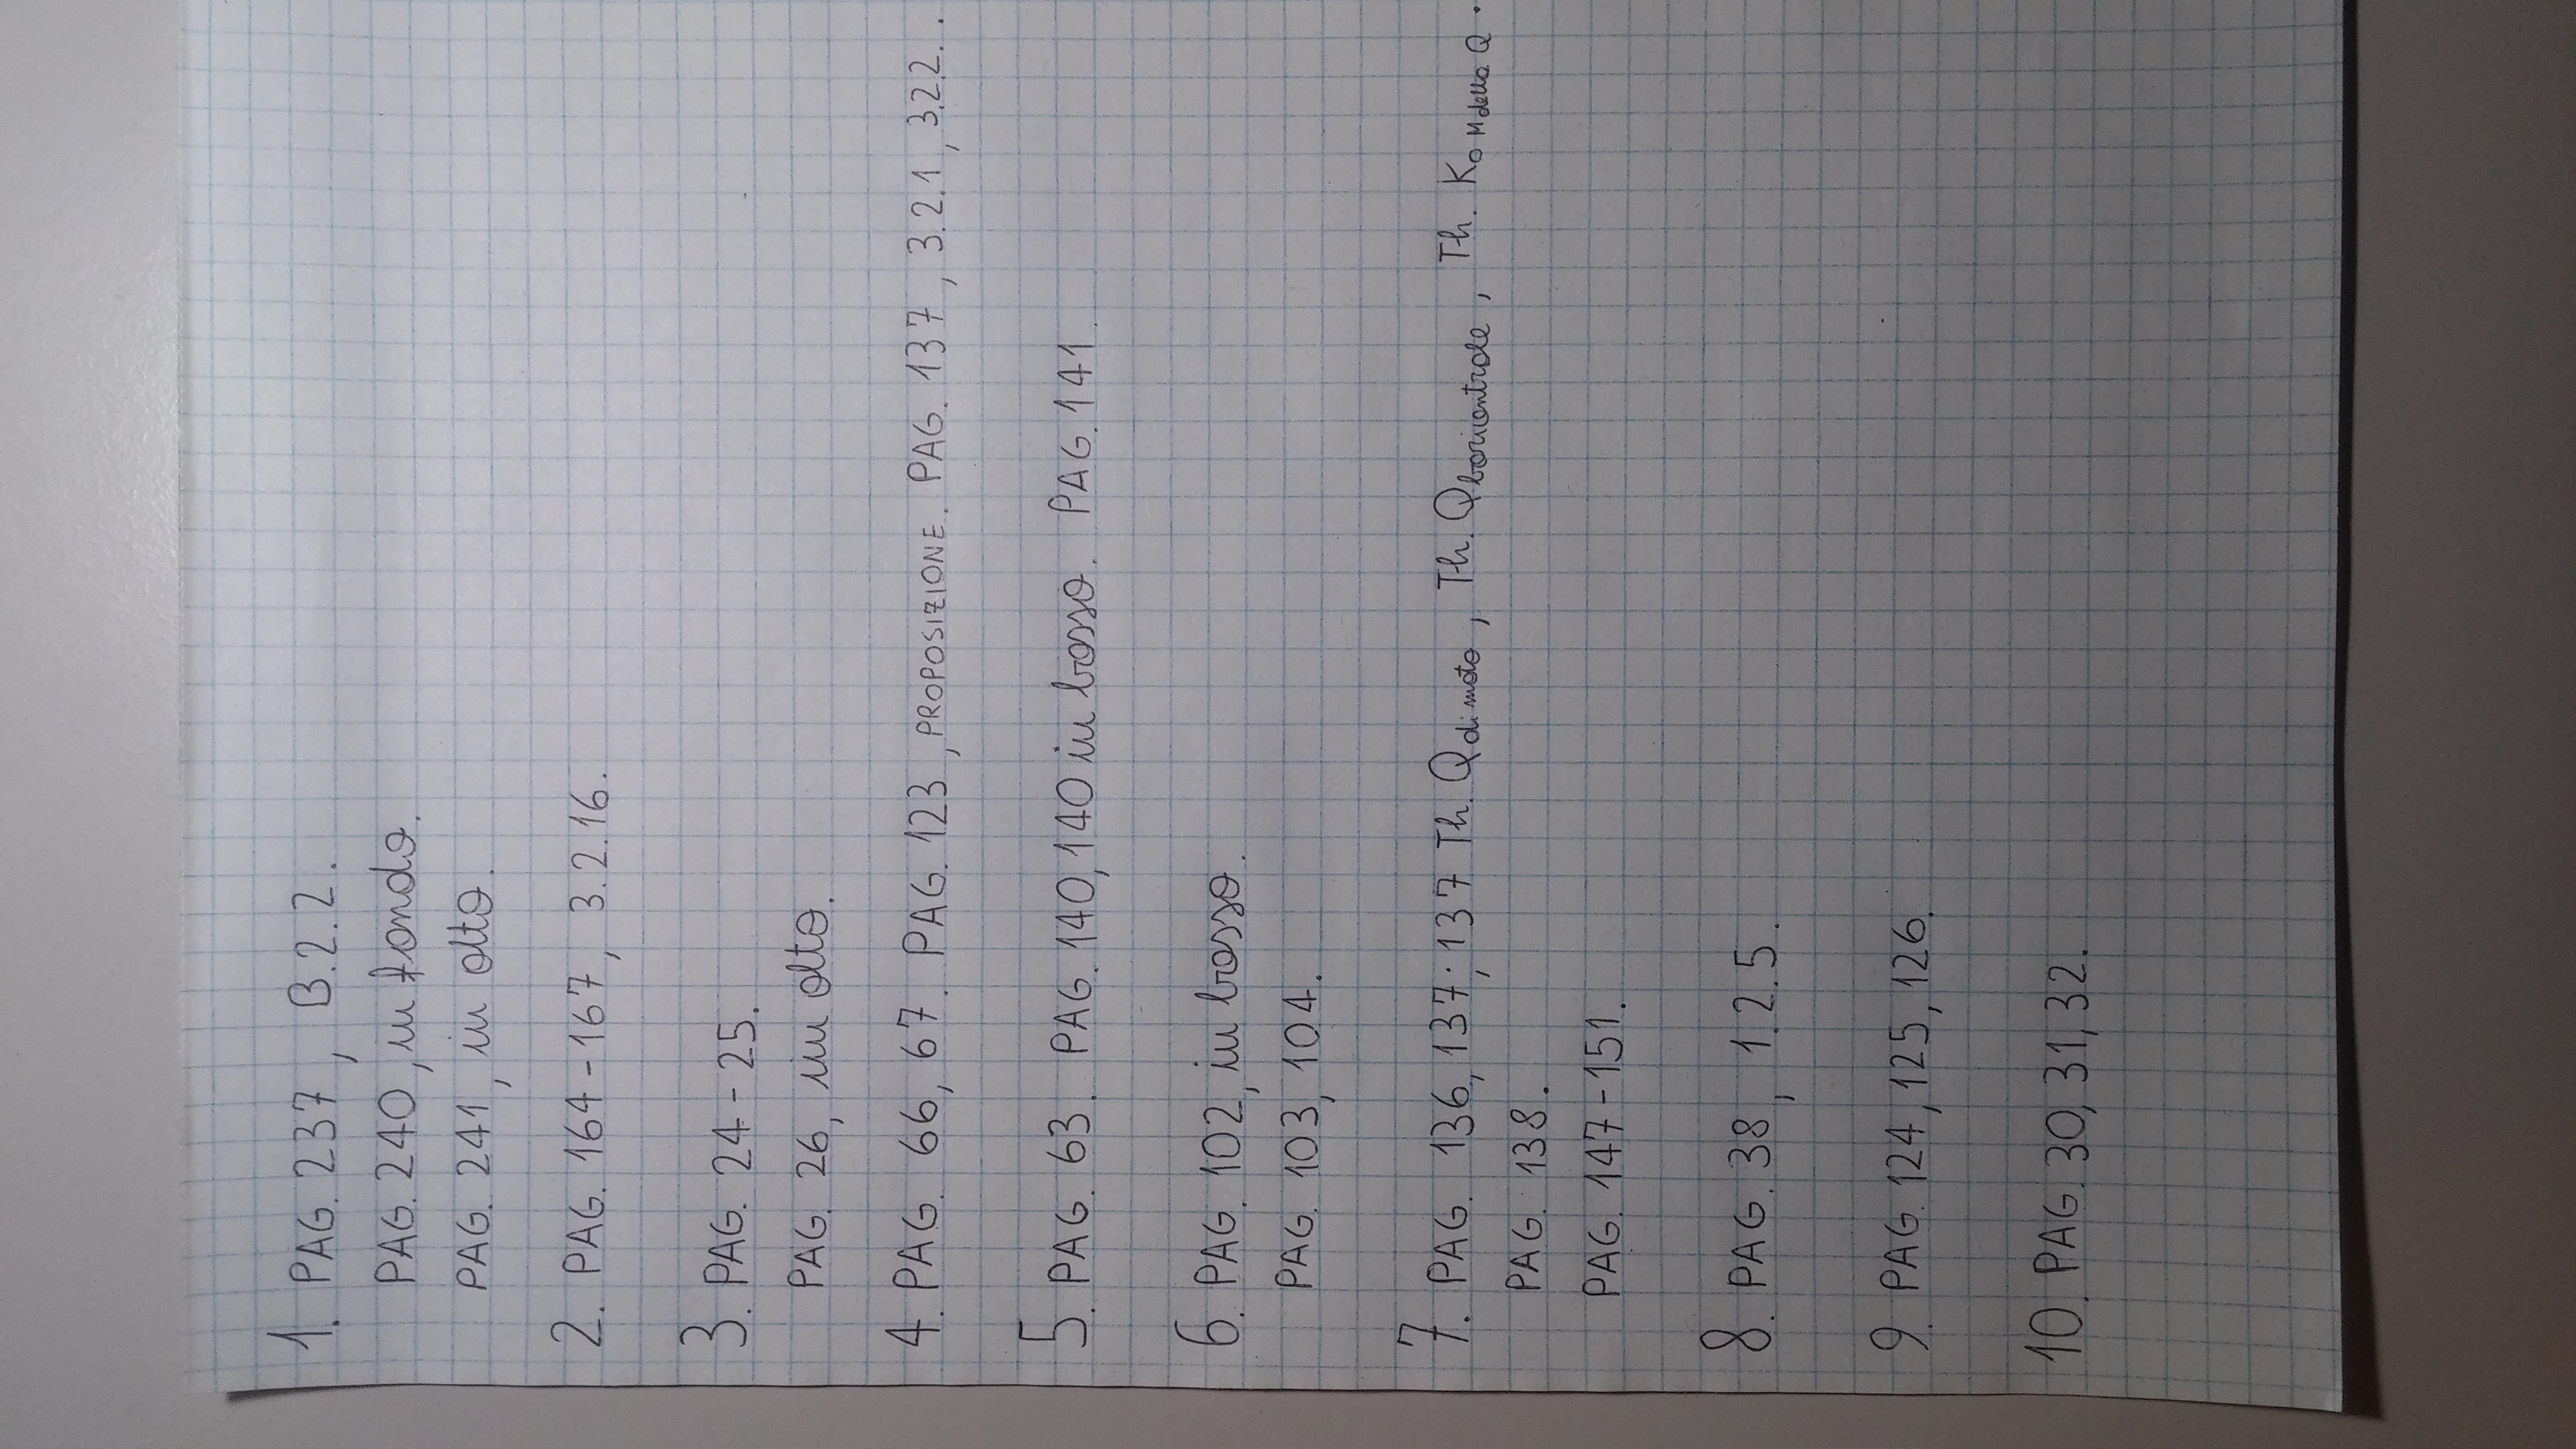 1. PAG. 237, B.2.2.
PAG. 240, in fondo.
PAG. 241, in alto.
2. PAG. 164-167, 3.2.16.
3. PAG. 24-25.
PAG. 26, in alto.
4. PAG. 66, 67. PAG. 123, PROPOSIZIONE. PAG. 137, 3.2.1, 3.2.2..
5. PAG. 63. PAG. 140, 140 in basso. PAG. 141.
6. PAG. 102, in basso.
PAG. 103, 104.
7. PAG. 136, 137; 137 Th. Q di moto, Th. Q baricentrale, Th. K o M della Q.
PAG. 138.
PAG. 147-151.
8. PAG. 38, 1.2.5.
9. PAG. 124, 125, 126.
10. PAG. 30, 31, 32.